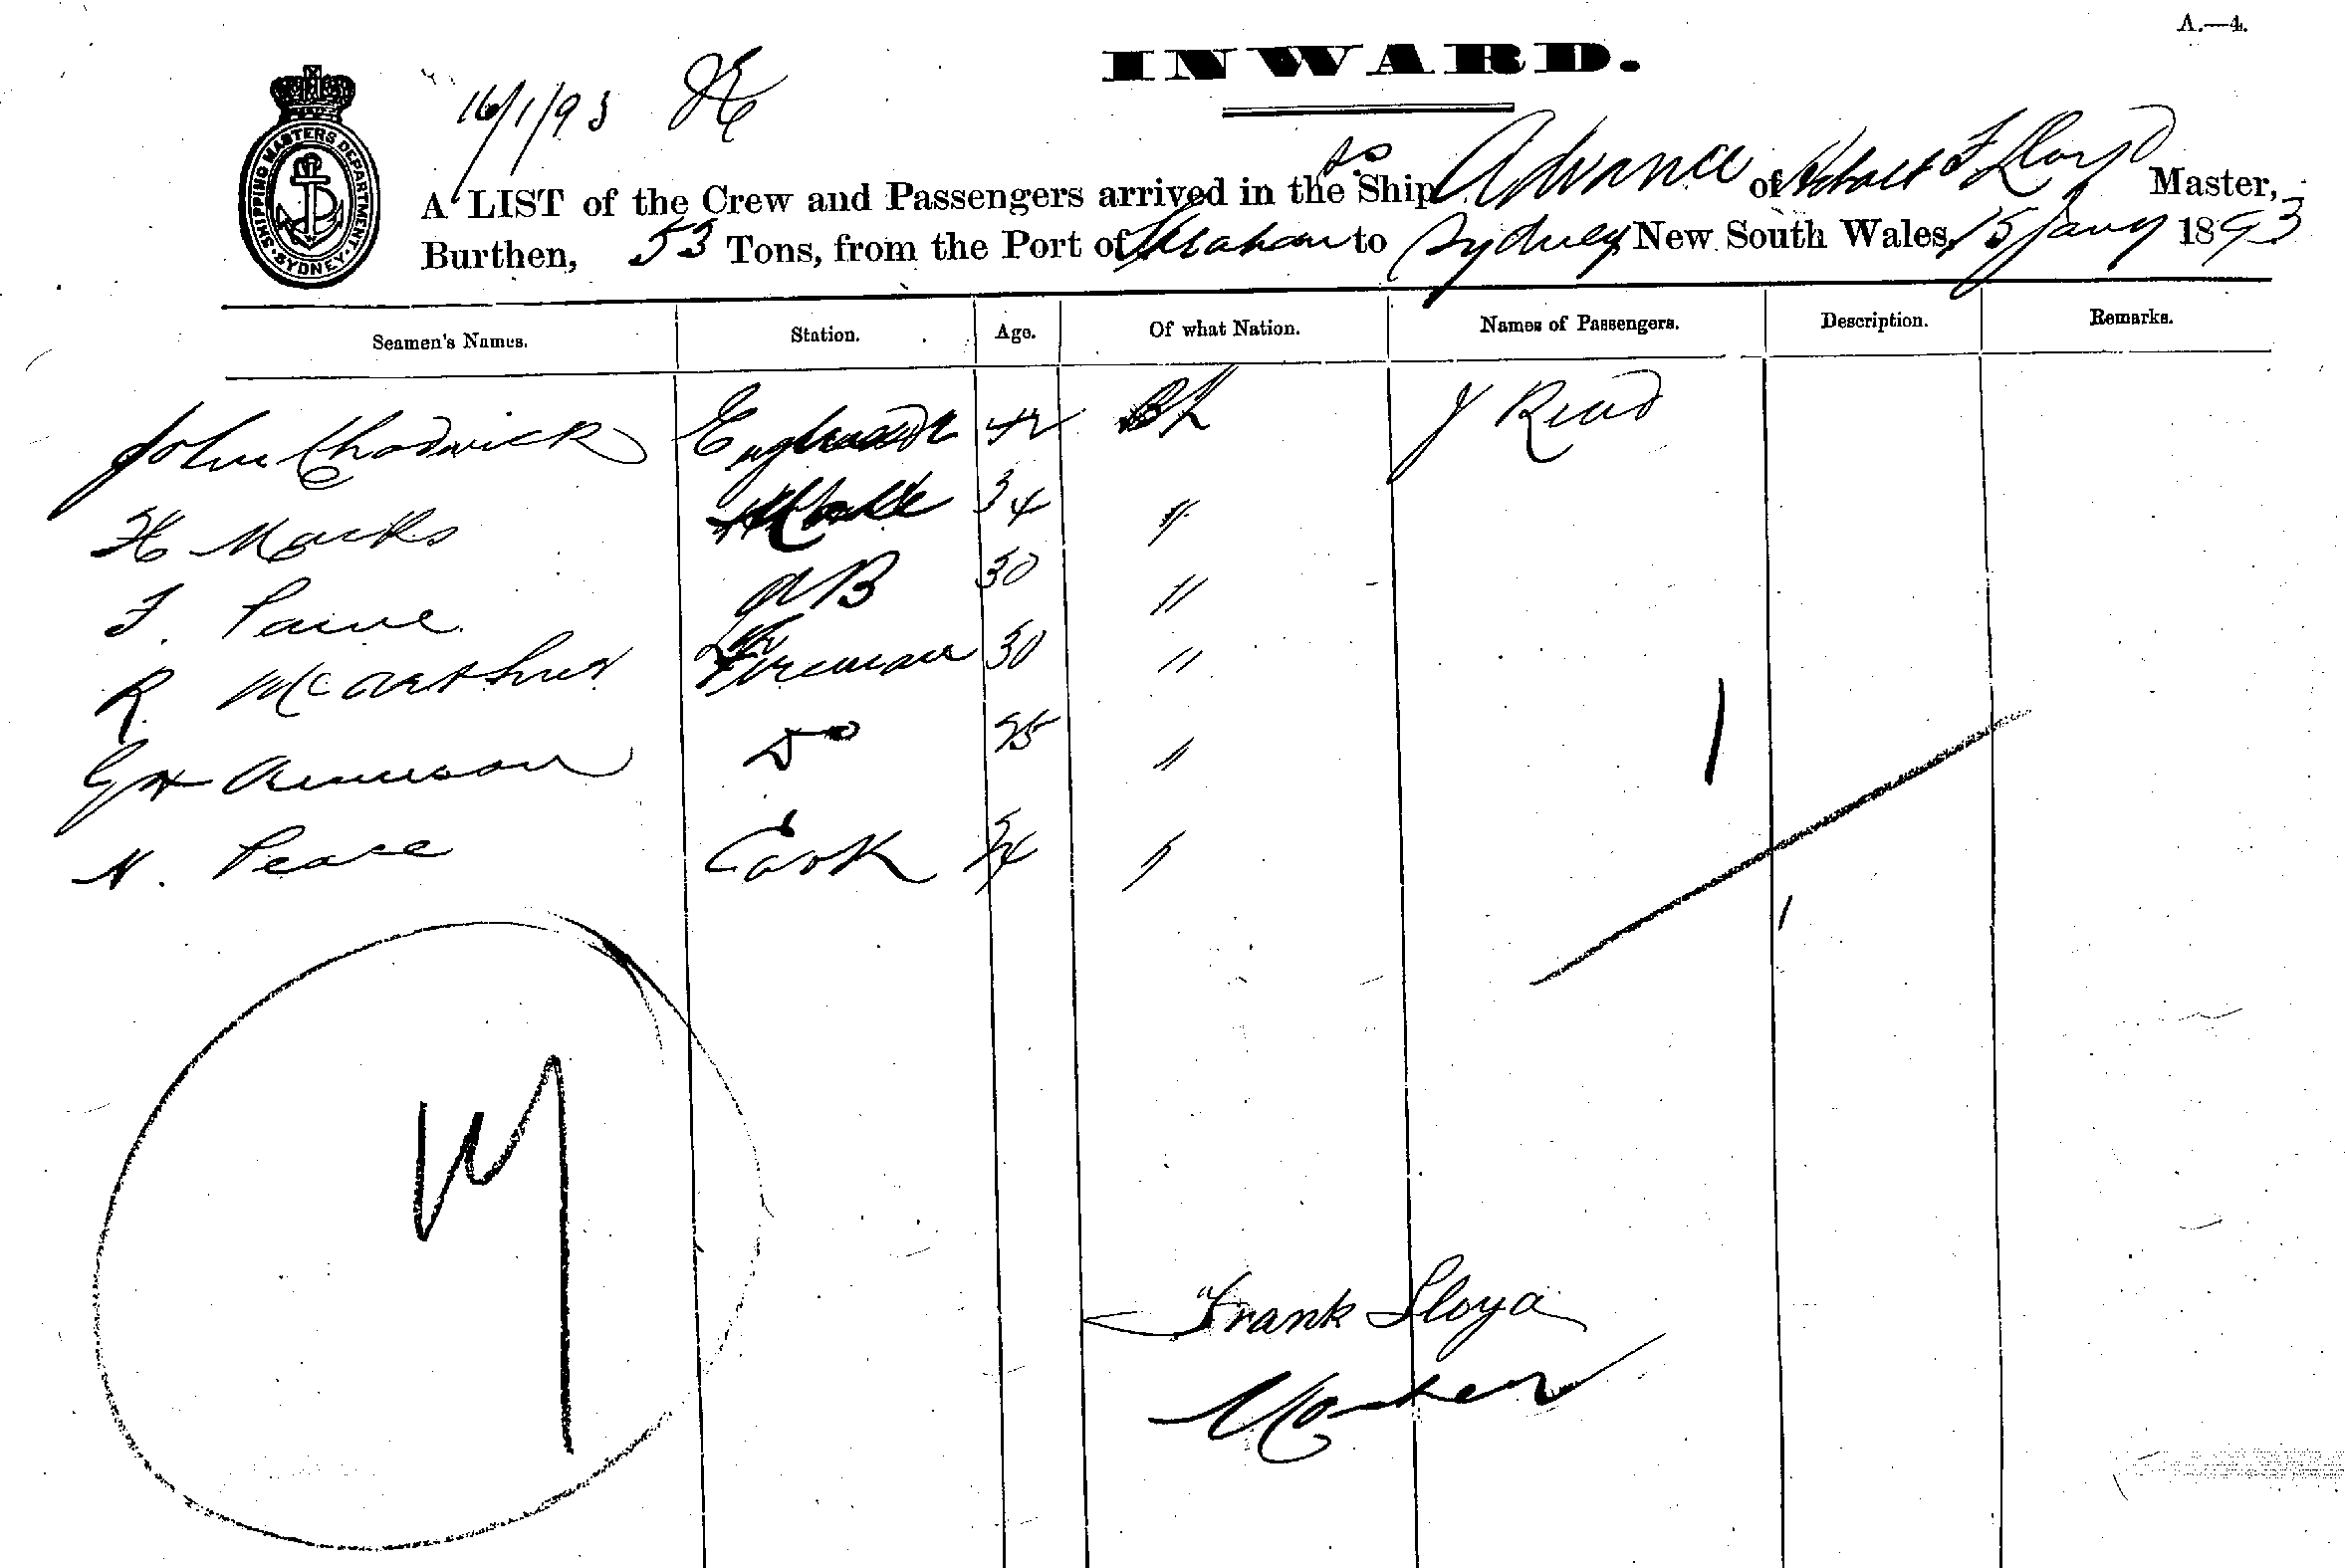 A.—4.
INWARD.
16/1/93
SHIPPING MASTERS DEPARTMENT SYDNEY
A LIST of the Crew and Passengers arrived in the Ship SS Advance of Hobart F Lloyd Master,
Burthen, 53 Tons, from the Port of Strahan to Sydney New South Wales, 15 Jany 1893
Seamen's Names. Station. Age. Of what Nation. Names of Passengers. Description. Remarks.
John Chadwick 42 J Read
H Marks 34 "
F. Paine AB 30 "
R. McArthur Fireman 30 "
GH Do 25 "
N. Pearce Cook "
Frank Lloyd
Master